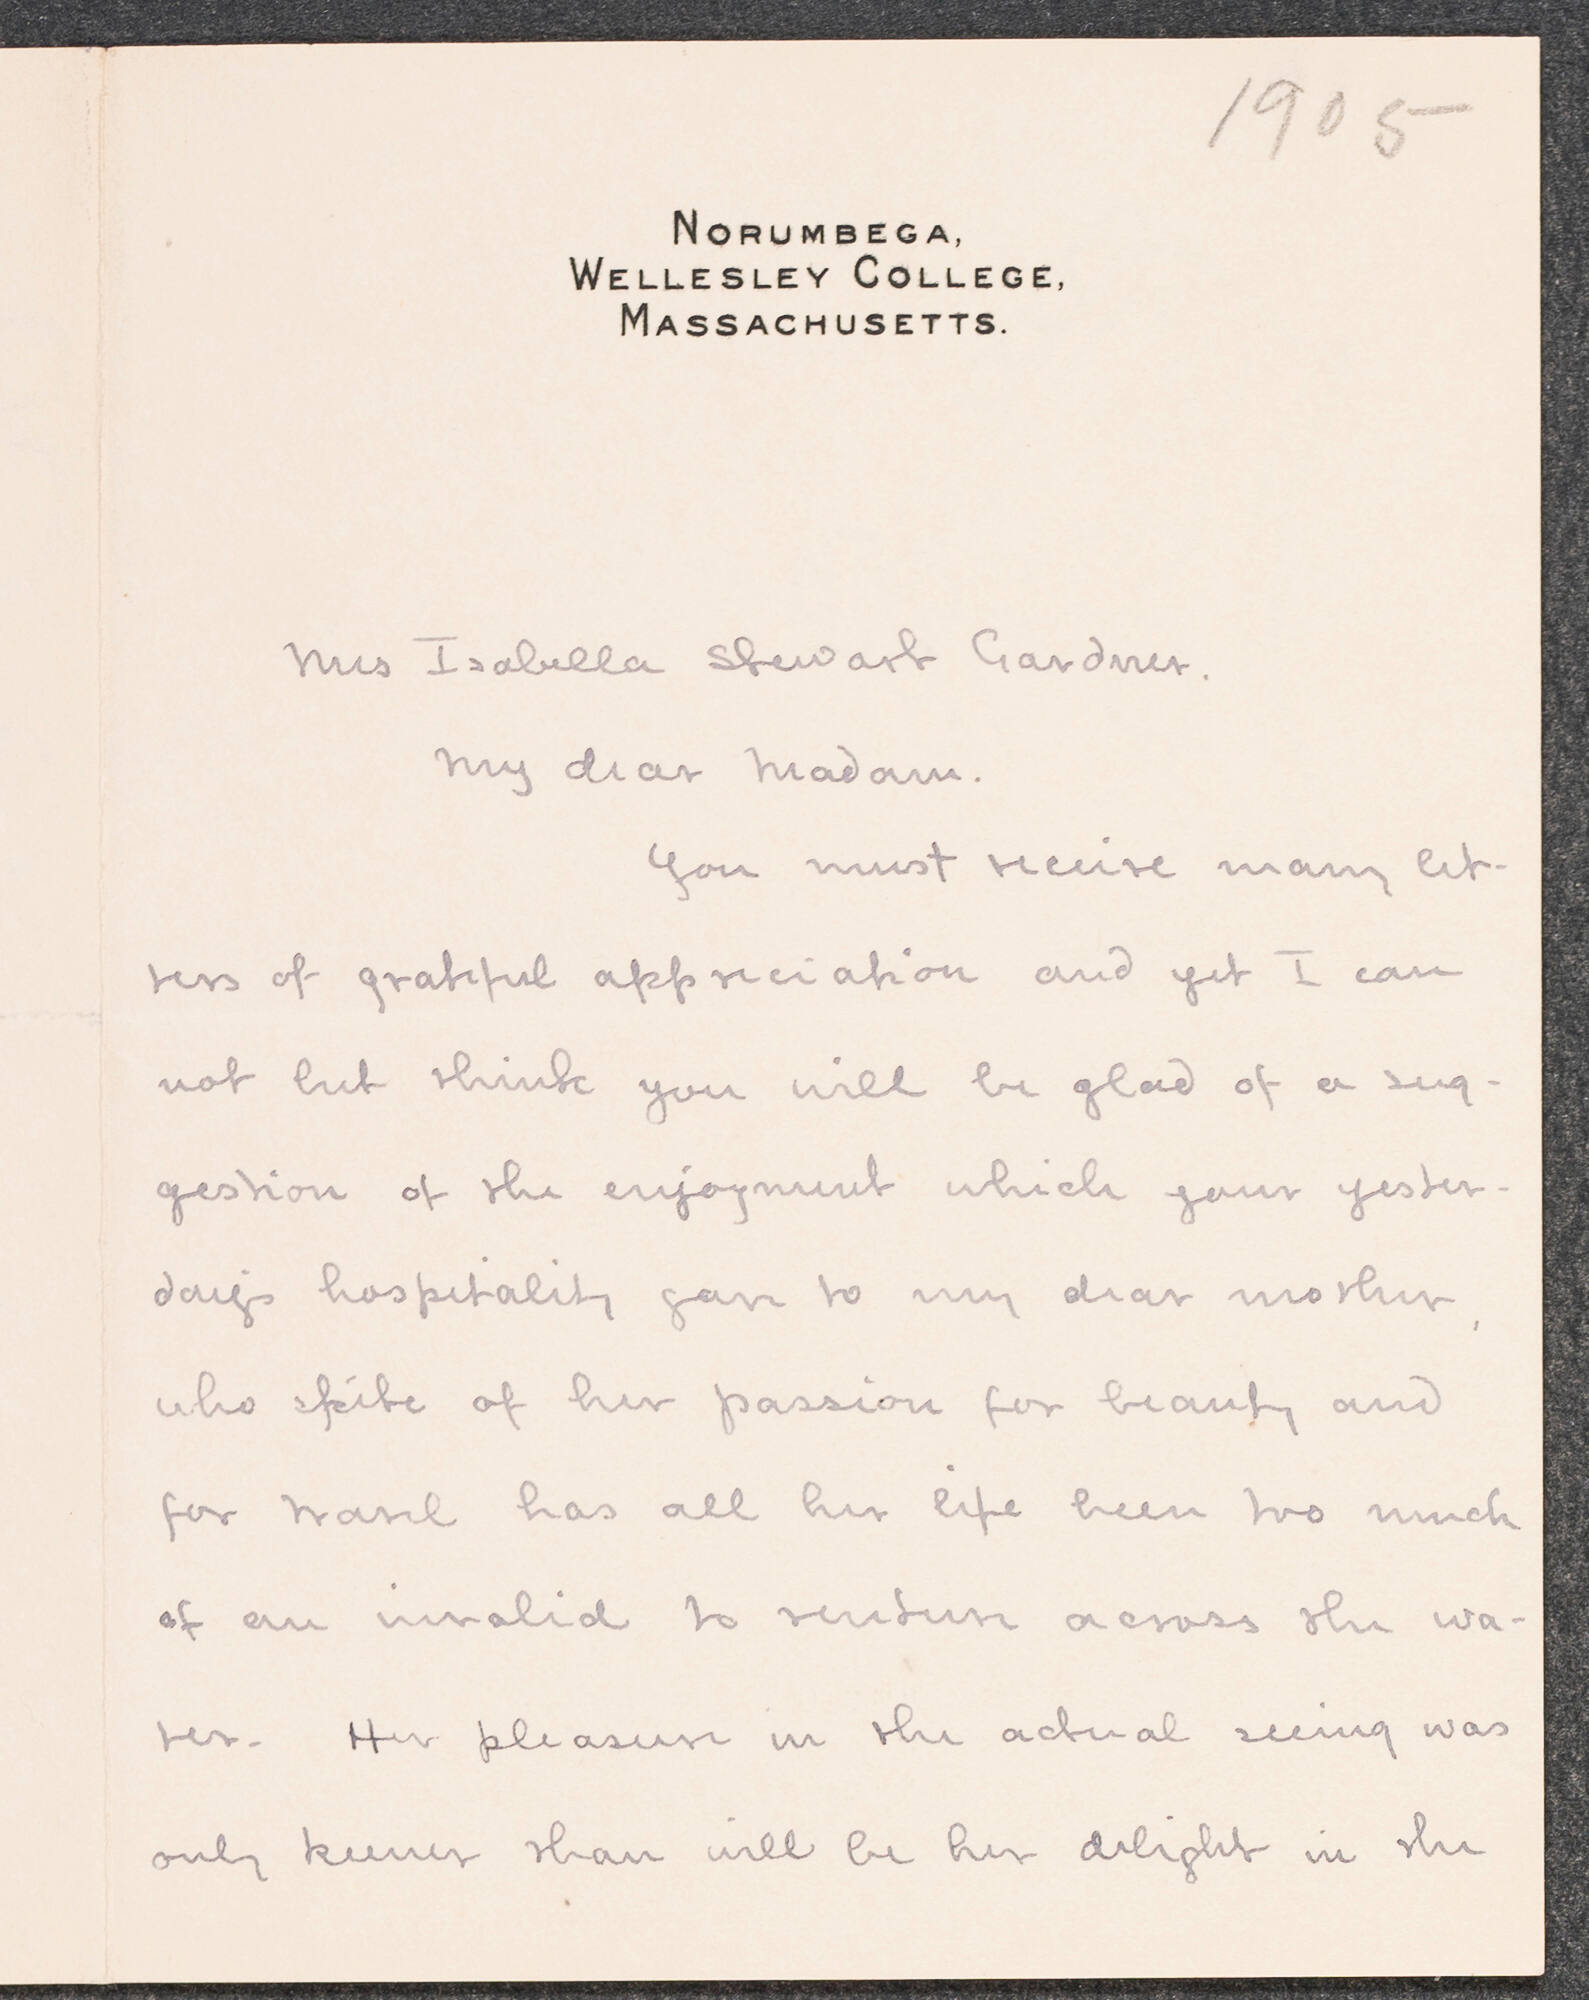 1905
NORUMBEGA,
WELLESLEY COLLEGE,
MASSACHUSETTS.
Mrs Isabella Stewart Gardner.
My dear Madam.
You must receive many let-
ters of grateful appreciation and yet I can
not but think you will be glad of a sug-
gestion of the enjoyment which your yester-
day's hospitality gave to my dear mother,
who spite of her passion for beauty and
for travel has all her life been too much
of an invalid to venture across the wa-
ter. Her pleasure in the actual seeing was
only keener than will be her delight in the